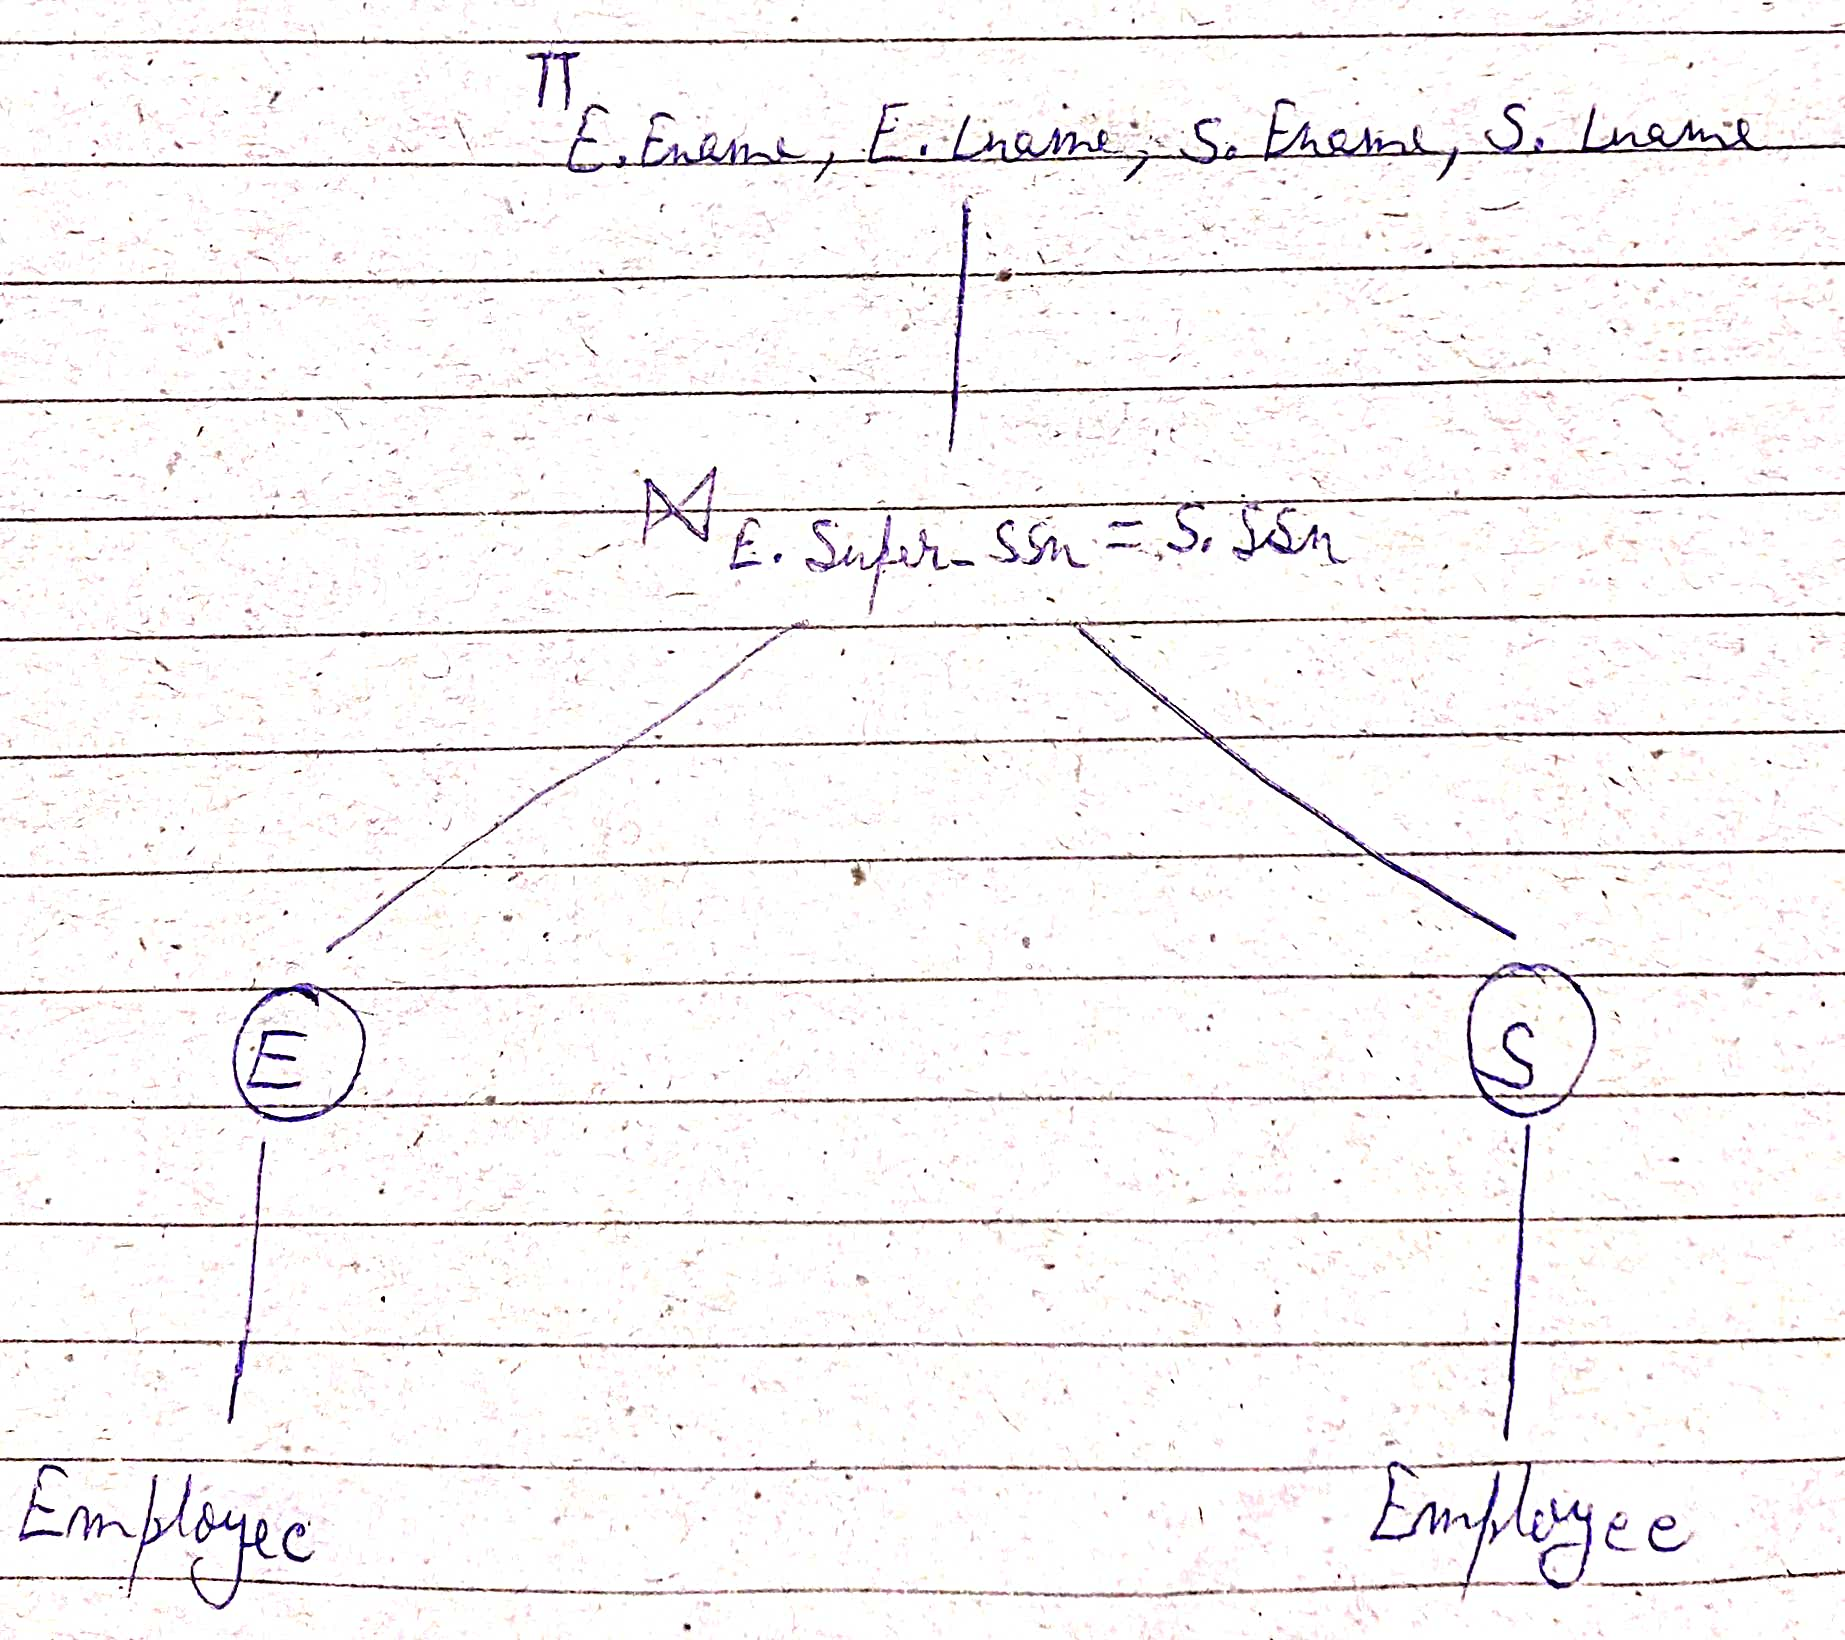 π E.Ename, E.Lname, S.Ename, S.Lname
⋈ E.Super_SSn = S.SSn
E S
Employee Employee